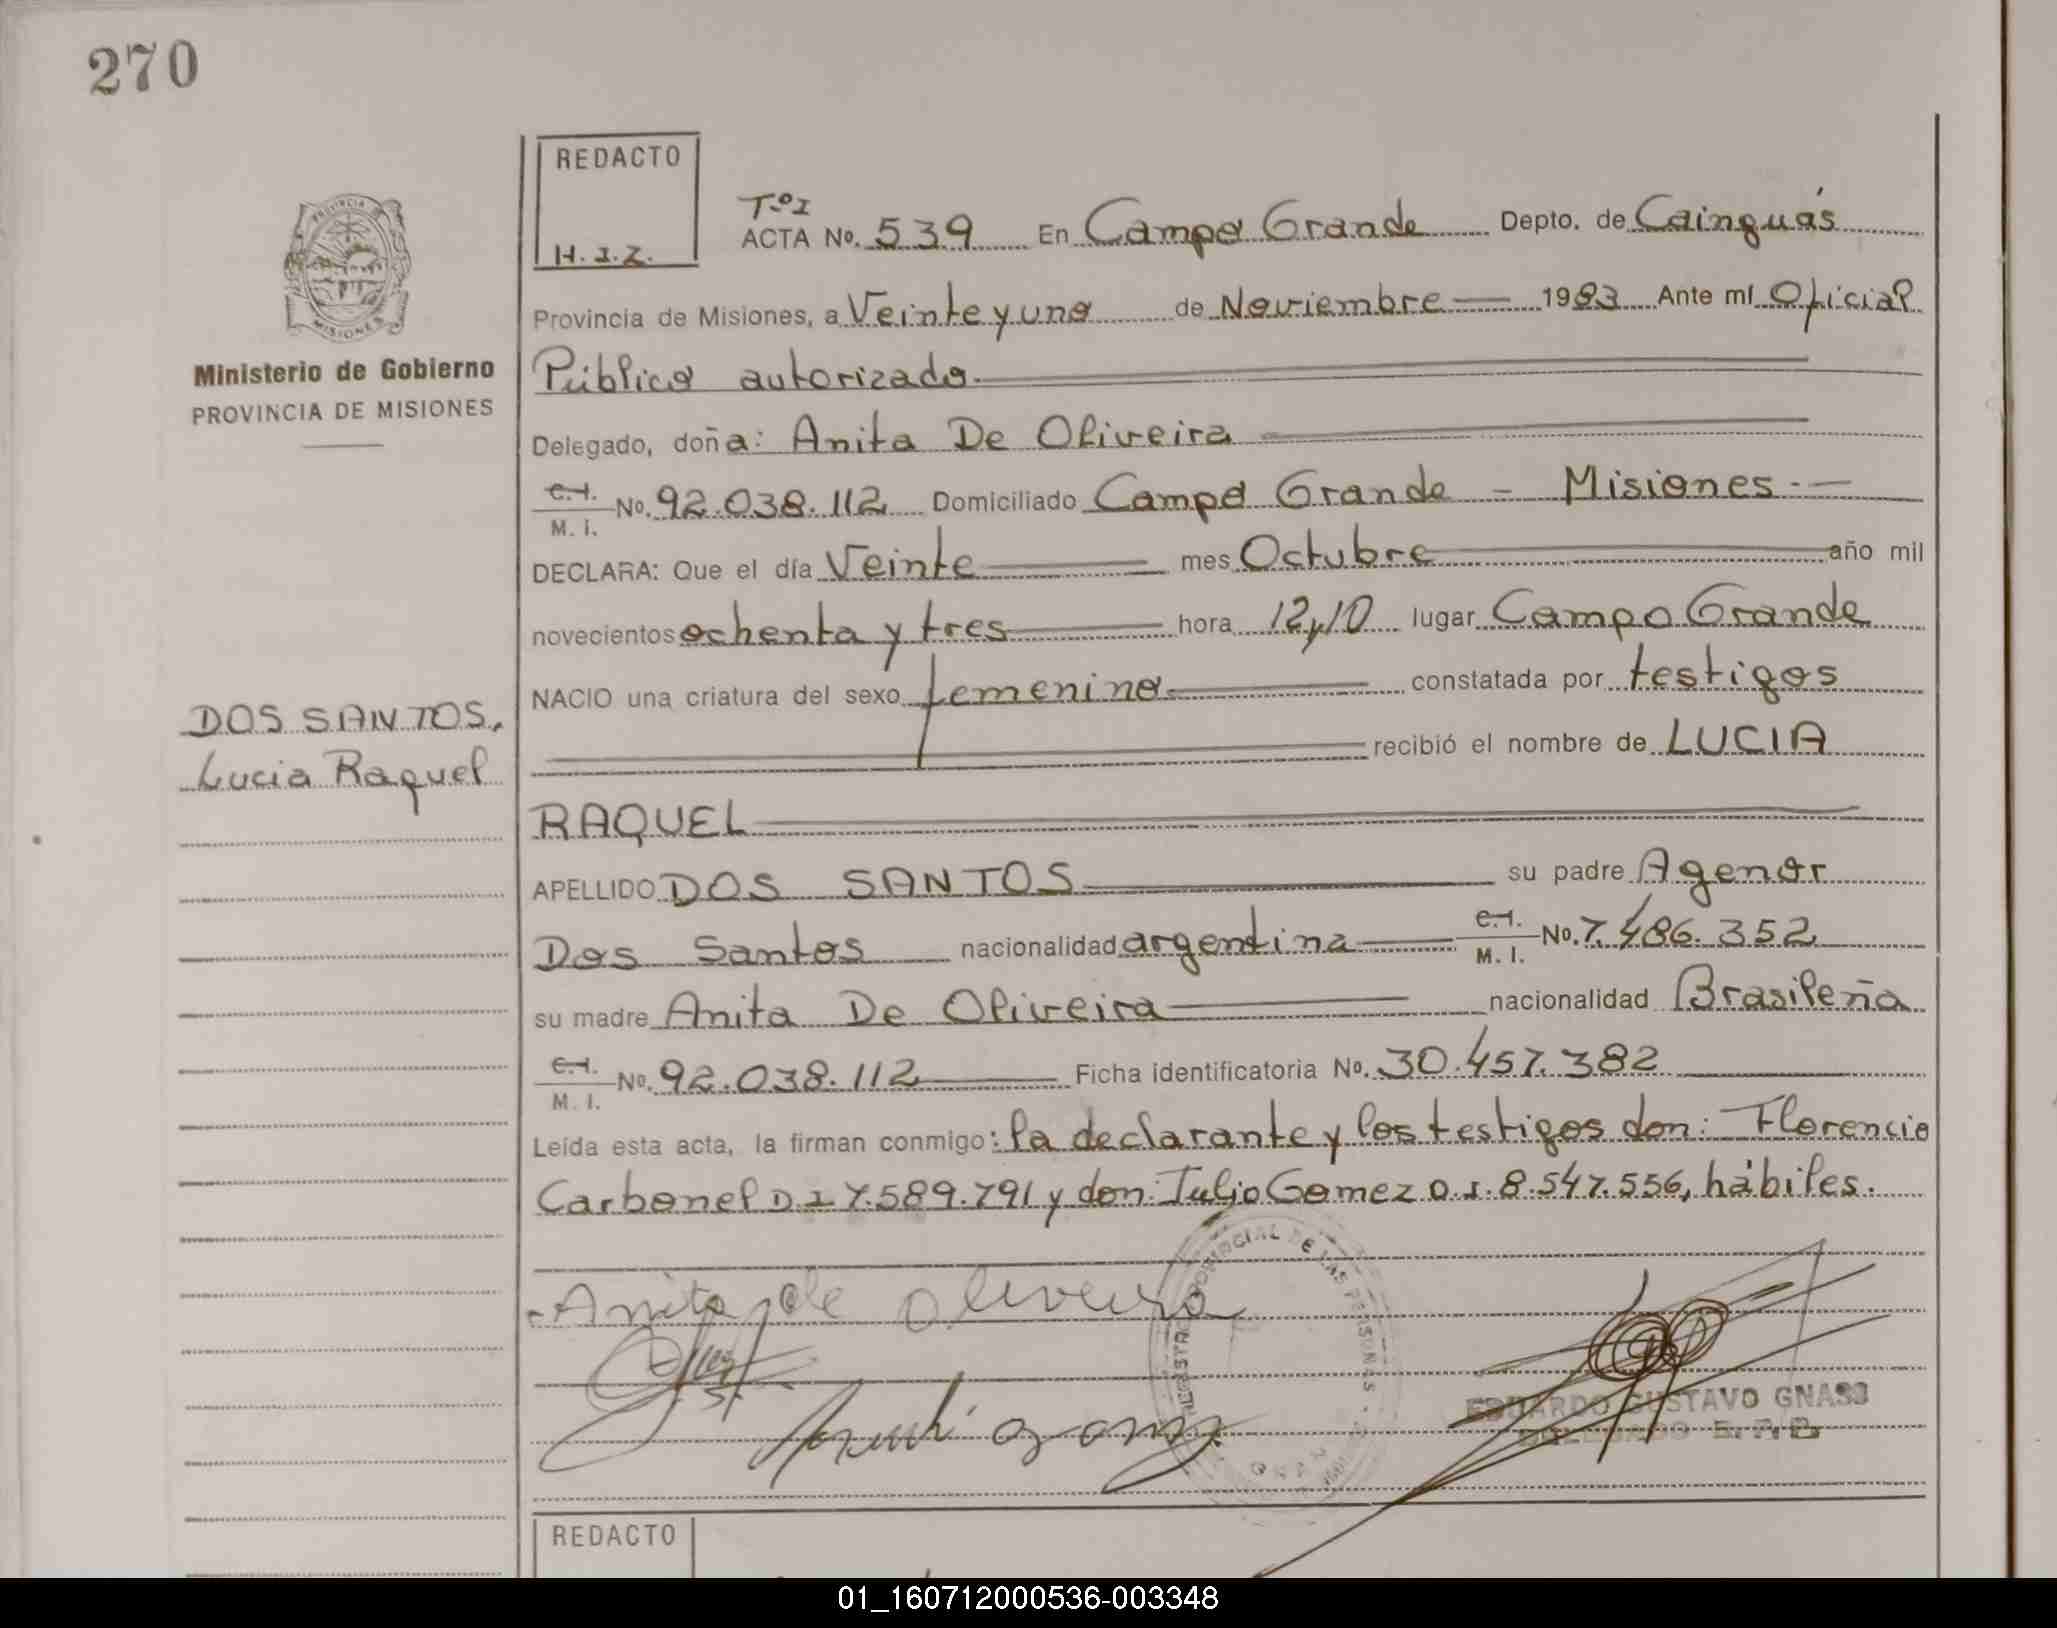 270
REDACTO
H.I.Z.
Tº I
ACTA Nº. 539 En Campo Grande Depto. de Cainguás
Provincia de Misiones, a Veinte y uno de Noviembre 1983 Ante mí Oficial
Público autorizado.
Ministerio de Gobierno
PROVINCIA DE MISIONES
PROVINCIA
MISIONES
Delegado, doña: Anita De Oliveira
C.I. M.I. Nº. 92.038.112 Domiciliado Campo Grande - Misiones.
DECLARA: Que el día Veinte mes Octubre año mil
novecientos ochenta y tres hora 12,10 lugar Campo Grande
NACIO una criatura del sexo femenino constatada por testigos
recibió el nombre de LUCIA
DOS SANTOS,
Lucia Raquel
RAQUEL
APELLIDO DOS SANTOS su padre Agenor
Dos Santos nacionalidad argentina C.I. M.I. Nº. 7.486.352
su madre Anita De Oliveira nacionalidad Brasileña
C.I. M.I. Nº. 92.038.112 Ficha identificatoria Nº. 30.457.382
Leída esta acta, la firman conmigo: la declarante y los testigos don: Florencio
Carbonel D.I 7.589.791 y don: Julio Gomez D.I. 8.547.556, hábiles.
Anita de Oliveira
PROVINCIAL DE LAS PERSONAS
EDUARDO GUSTAVO GNASS
DELEGADO
REDACTO
01_160712000536-003348